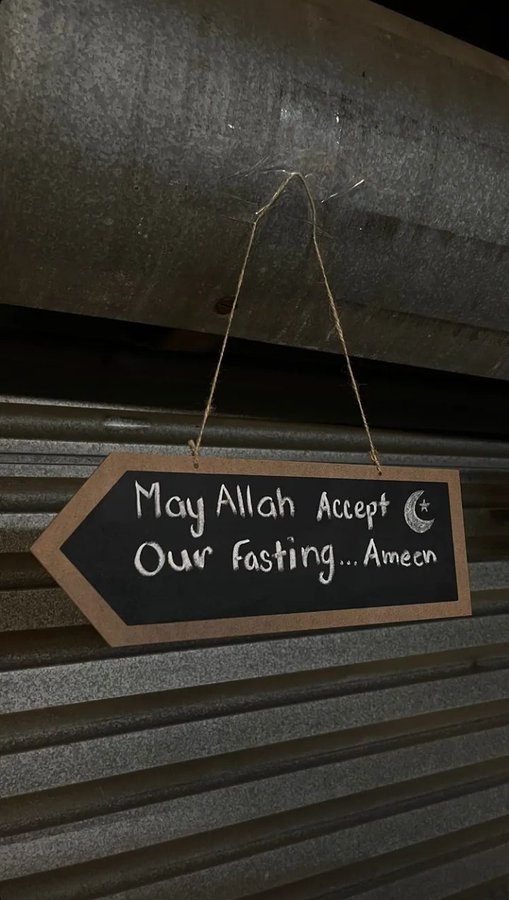 May Allah Accept
Our Fasting... Ameen